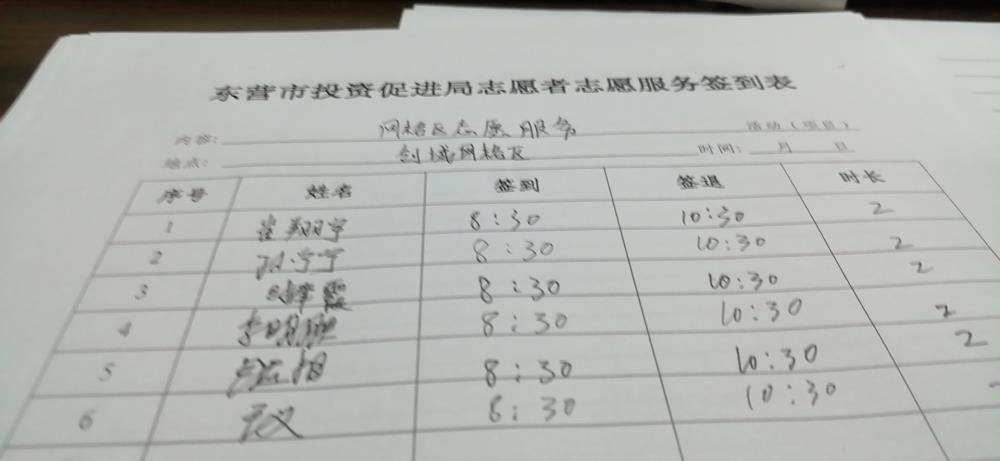 东营市投资促进局志愿者志愿服务签到表
内容: 网格区志愿服务 活动（项目）
地点: 创城网格区 时间: 月 日
序号 姓名 签到 签退 时长
1 崔翔宇 8:30 10:30 2
2 8:30 10:30 2
3 8:30 10:30 2
4 8:30 10:30 2
5 8:30 10:30 2
6 8:30 10:30